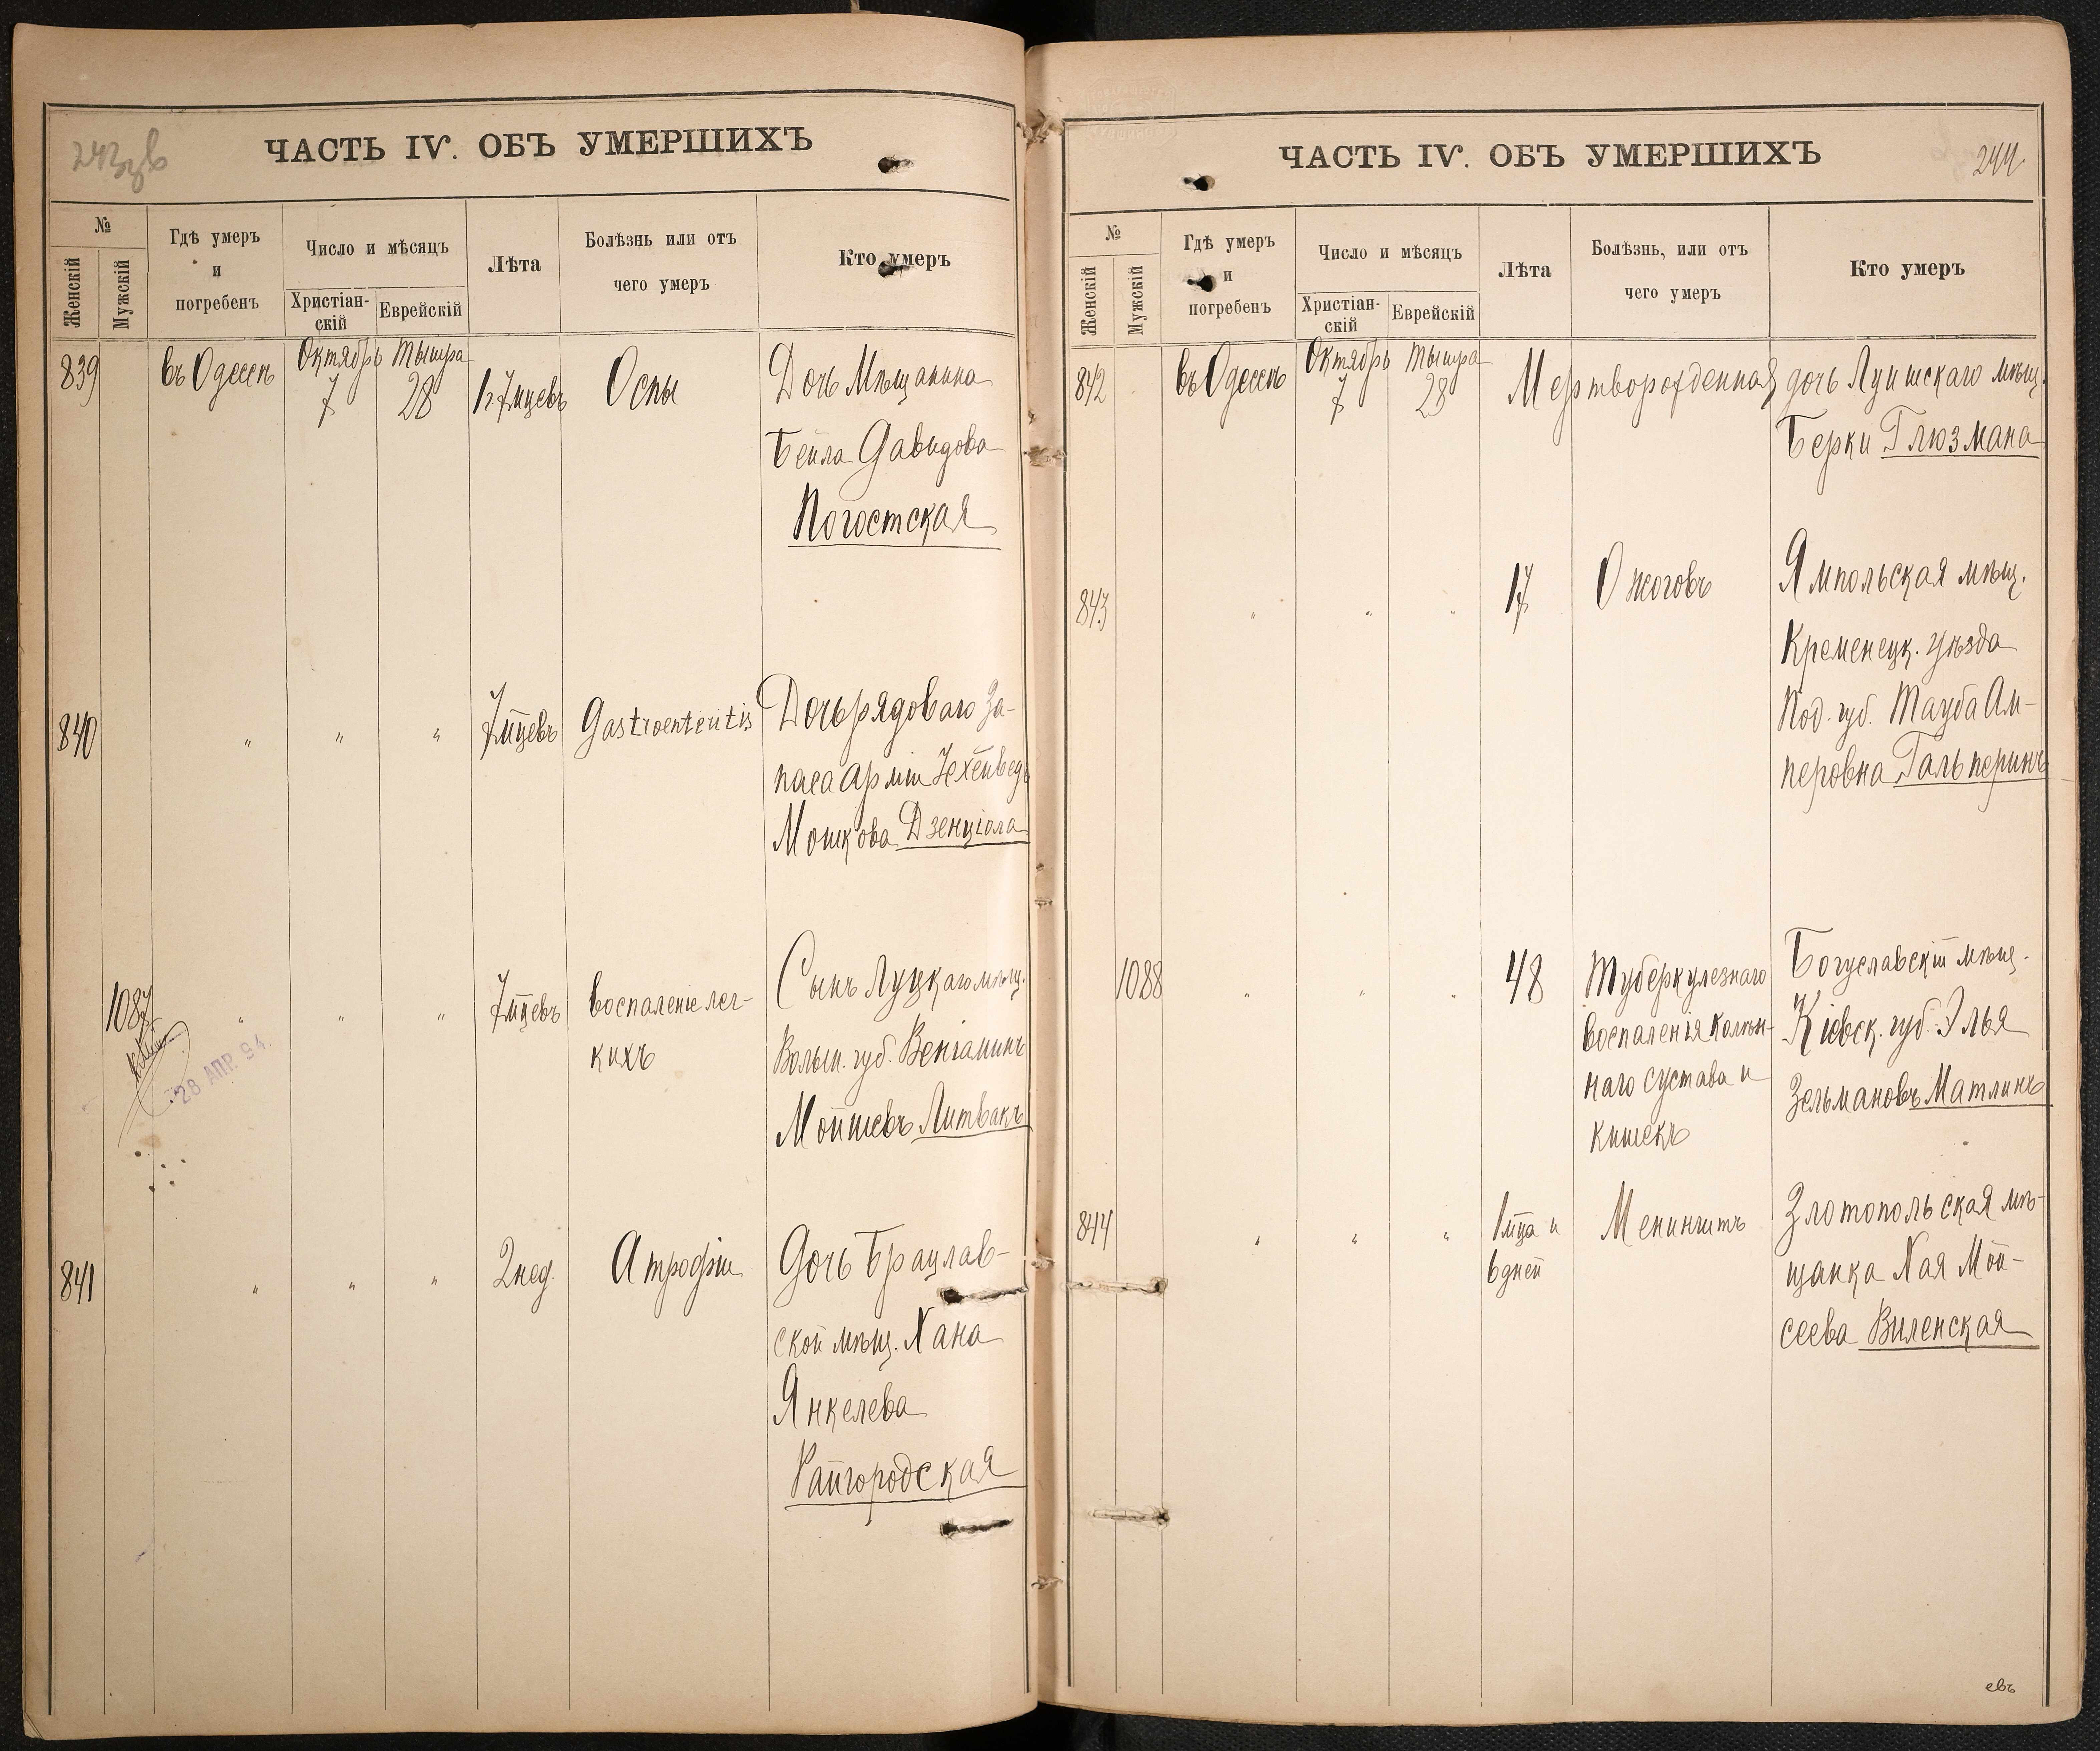 ЧАСТЬ IV. ОБЪ УМЕРШИХЪ
№
Женскій
Мужскій
Гдѣ умеръ
и
погребенъ
Число и мѣсяцъ
Христіан-
скій
Еврейскій
Лѣта
Болѣзнь или отъ
чего умеръ
Кто умеръ
839
въ Одессѣ
Октябрь
7
Тышра
28
Оспы
Дочь Мѣщанина
Бейла Давидова
Погостская
840
" " "
7 мцевъ
Gastroenteritis
Дочь рядоваго за-
паса арміи
Мошкова Дзенціола
1087
" " "
7 мцевъ
Воспаленіе лег-
кихъ
Сынъ Луцкаго мѣщ.
Волын. губ. Веніаминъ
Мойшевъ Литвакъ
28 АПР. 94.
841
" " "
2 нед.
Атрофіи
Дочь Брацлав-
ской мѣщ. Хана
Янкелева
Райгородская
ЧАСТЬ IV. ОБЪ УМЕРШИХЪ
244
№
Женскій
Мужскій
Гдѣ умеръ
и
погребенъ
Число и мѣсяцъ
Христіан-
скій
Еврейскій
Лѣта
Болѣзнь, или отъ
чего умеръ
Кто умеръ
842
въ Одессѣ
Октябрь
7
Тышра
28
Мертворожденная дочь мѣщ.
Берки Глюзмана
843
" " "
17
Ожоговъ
Ямпольская мѣщ.
Кременецк. уѣзда
Под. губ. Тауба Ам-
перовна Гальперинъ
1088
" " "
48
Туберкулезнаго
воспаленія колѣн-
наго сустава и
кишекъ
Богуславскій мѣщ.
Кіевск. губ. Элья
Зельмановъ Матлинъ
844
" " "
1 мца и
6 дней
Менингитъ
Злотопольская мѣ-
щанка Хая Мой-
сеева Виленская
евъ